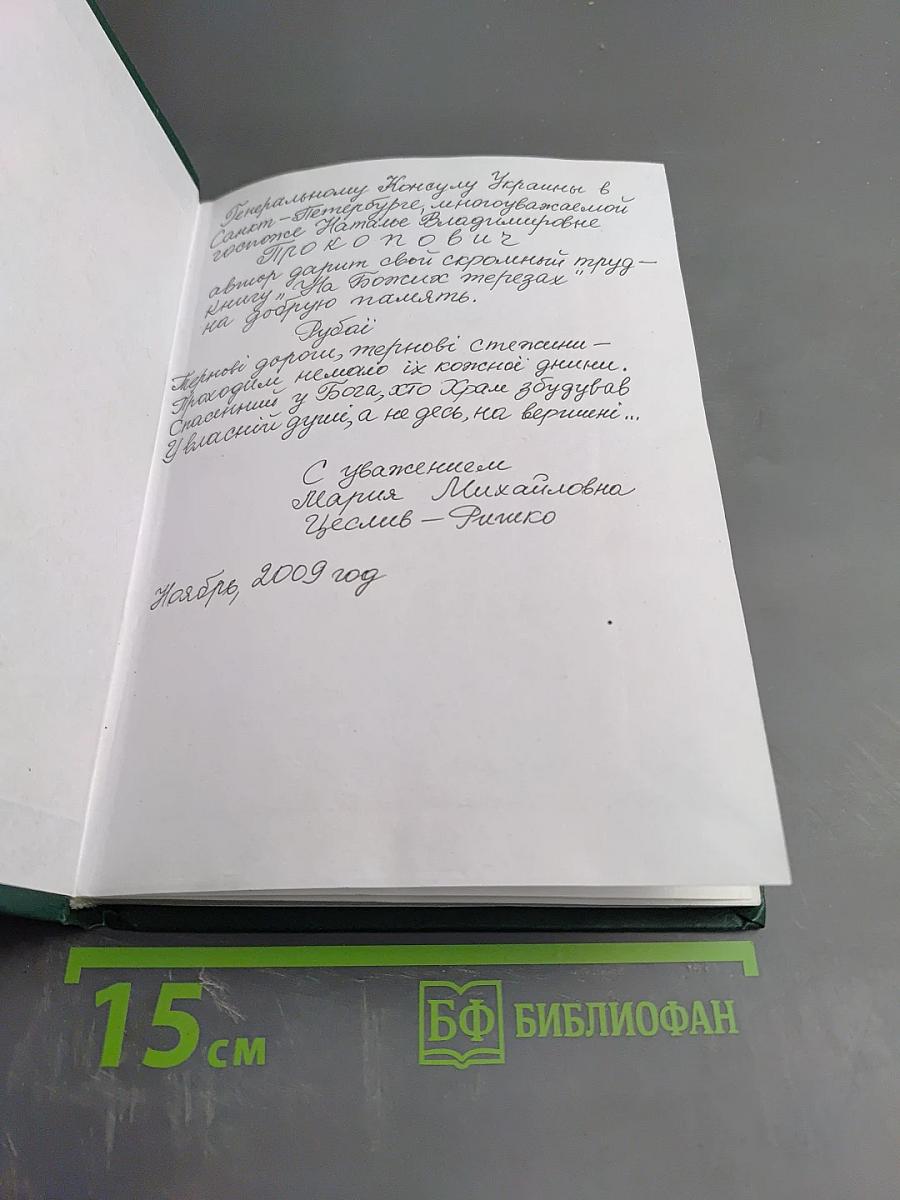 Генеральному Консулу Украины в
Санкт-Петербурге, многоуважаемой
госпоже Наталье Владимировне
Прокопович
автор дарит свой скромный труд –
книгу „На Божих терезах"
на добрую память.
Рубаї
Тернові дороги, тернові стежини –
Проходим немало їх кожної днини.
Спасенний у Бога, хто Храм збудував
У власній душі, а не десь, на вершині...
С уважением
Мария Михайловна
Цеслив – Ришко
Ноябрь, 2009 год
15 см
БФ БИБЛИОФАН